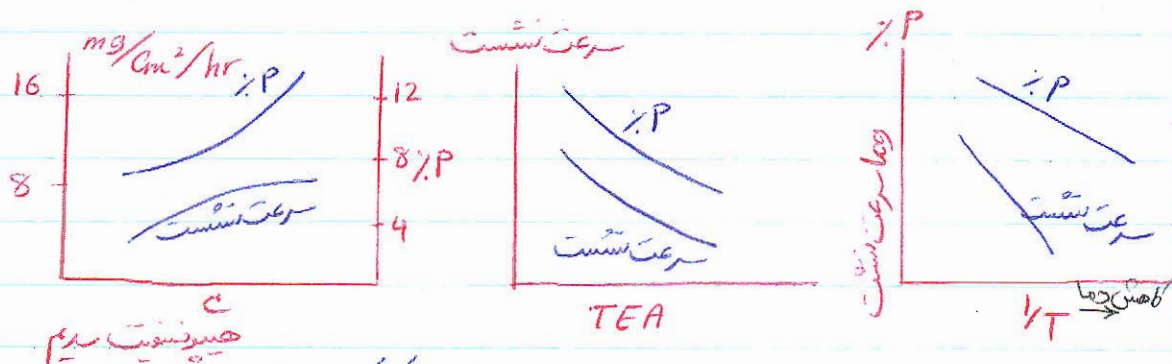 mg/cm²/hr
%P
16
8
12
8 %P
4
سرعت نشست
C
هیپوفسفیت سدیم
سرعت نشست
%P
سرعت نشست
TEA
%P
%P
سرعت نشست
سرعت نشست
1/T
کاهش دما